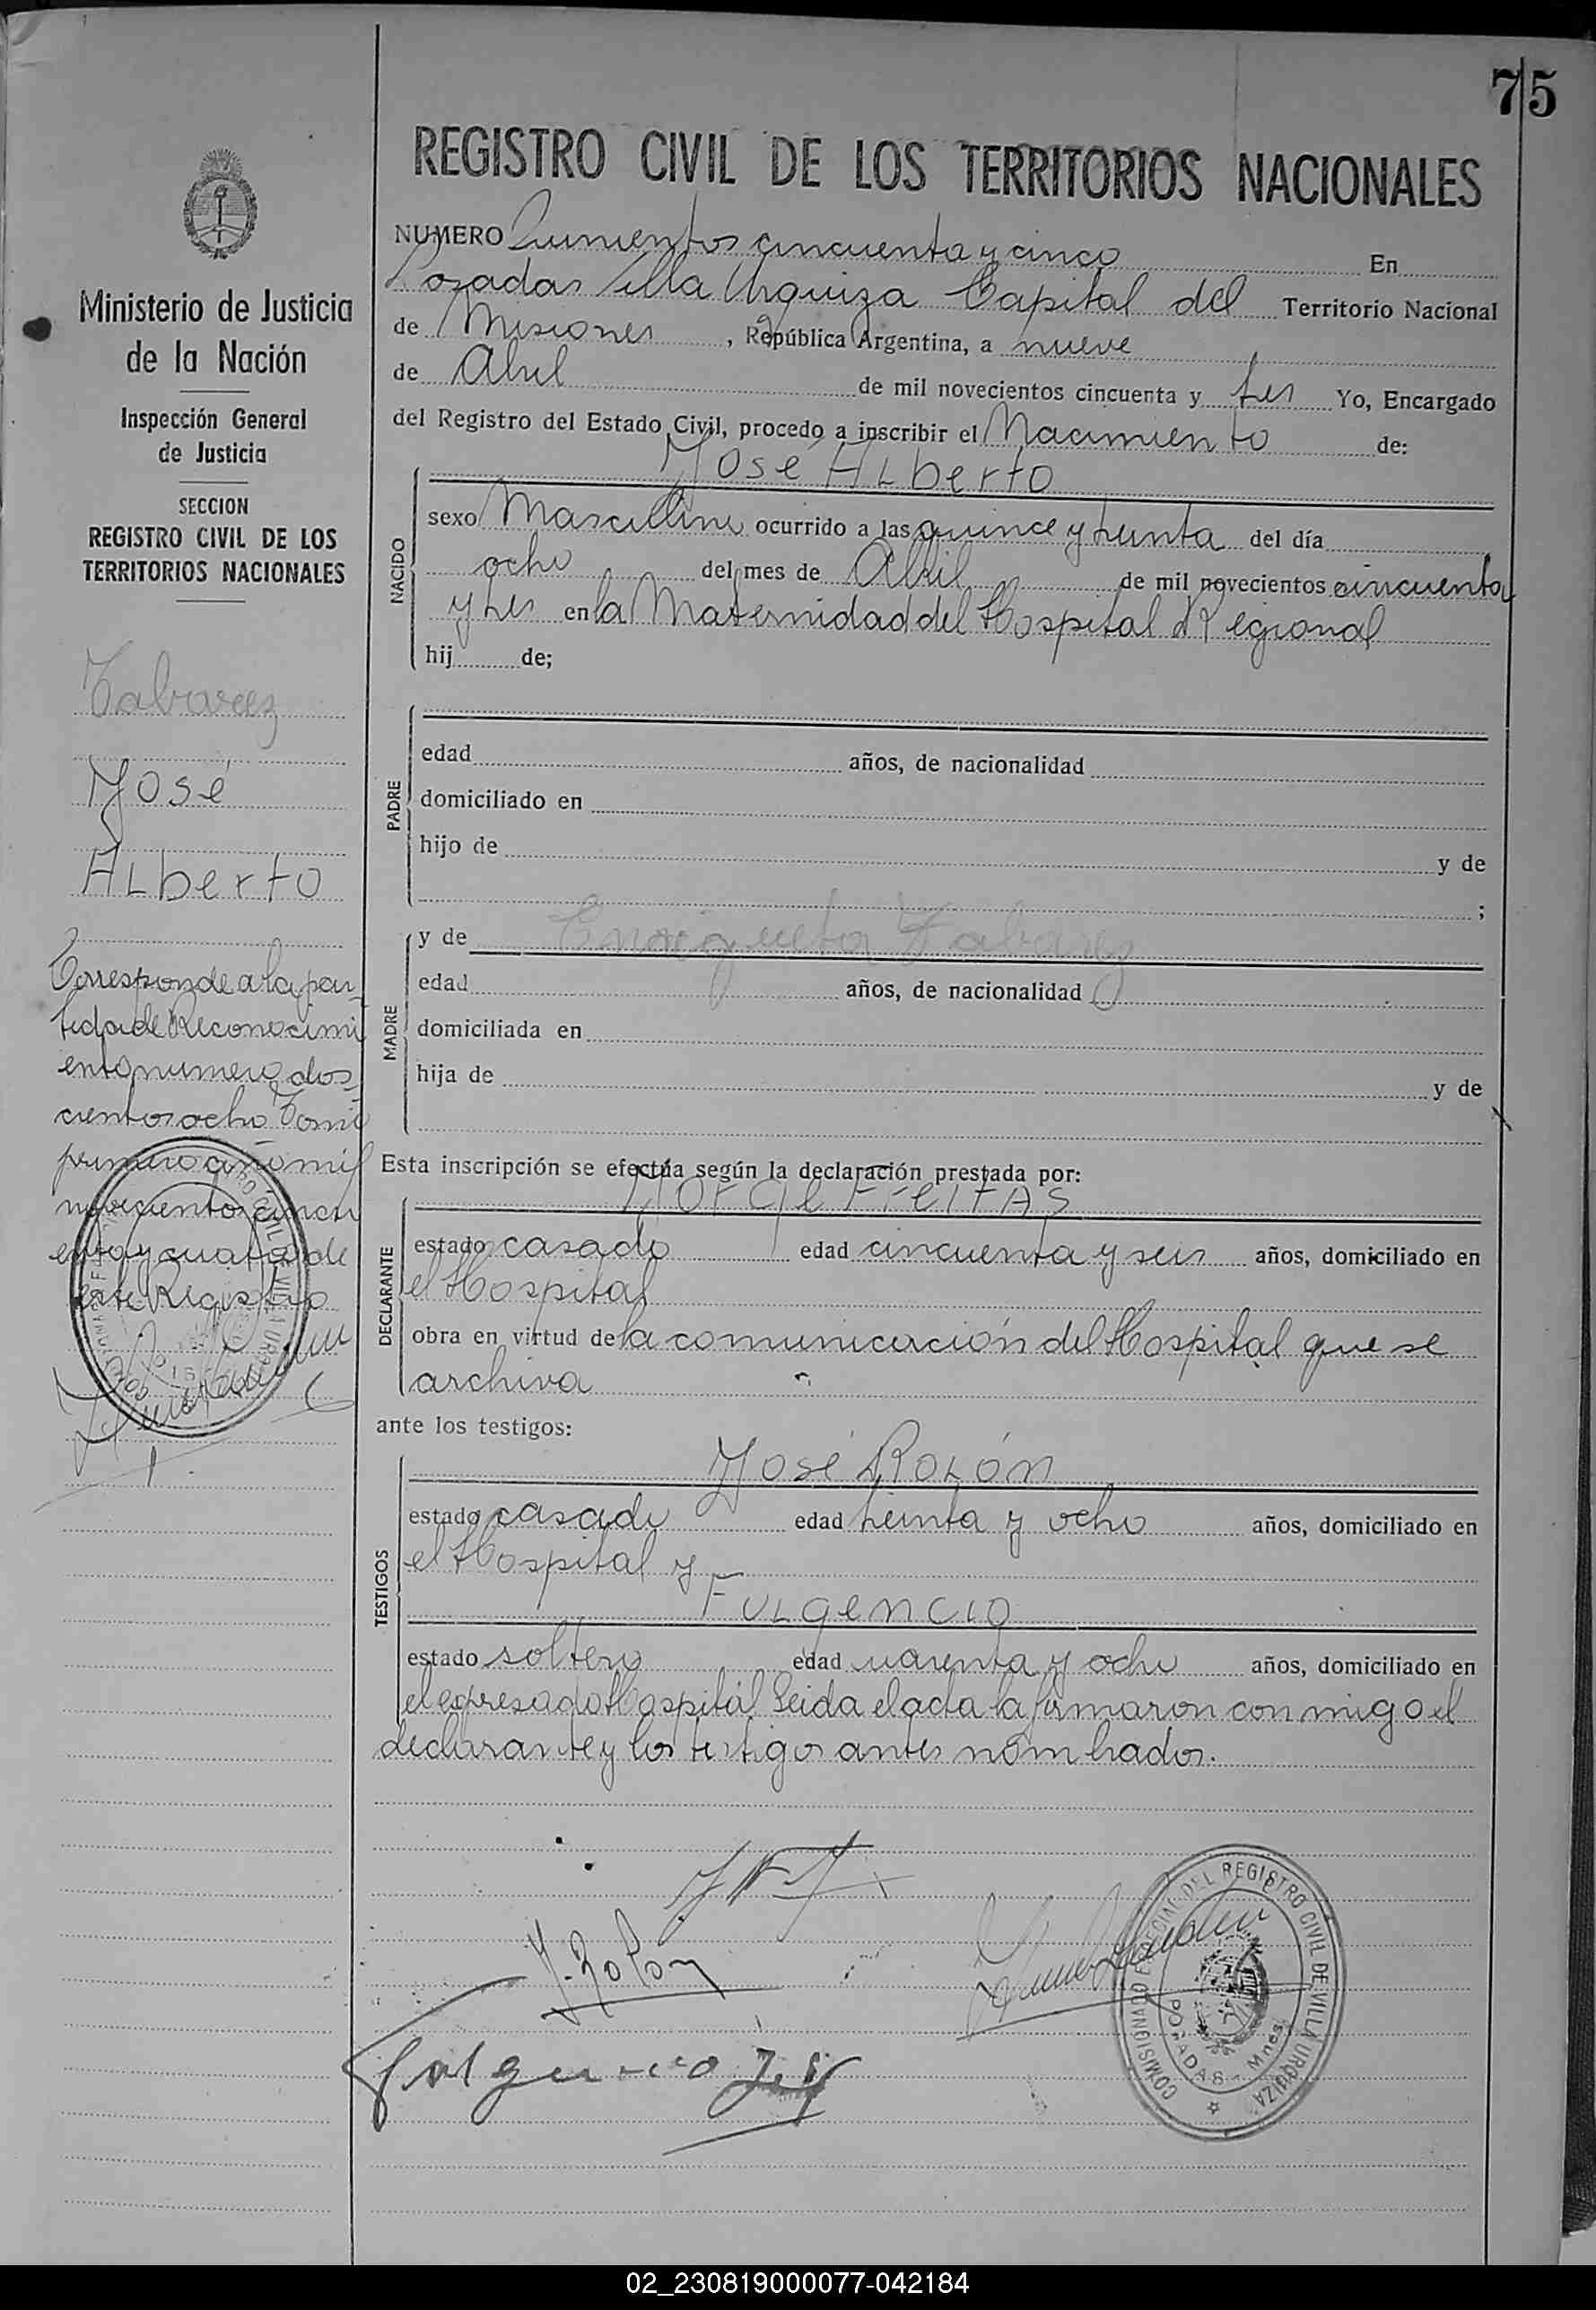 75
REGISTRO CIVIL DE LOS TERRITORIOS NACIONALES
NUMERO Quinientos cincuenta y cinco En
Posadas Villa Urquiza Capital del Territorio Nacional
de Misiones, República Argentina, a nueve
de Abril de mil novecientos cincuenta y tres Yo, Encargado
del Registro del Estado Civil, procedo a inscribir el Nacimiento de:
José ALberto
NACIDO
sexo Masculino ocurrido a las quince y treinta del día
ocho del mes de Abril de mil novecientos cincuenta
y tres en la Maternidad del Hospital Regional
hij de;
PADRE
edad años, de nacionalidad
domiciliado en
hijo de y de
;
MADRE
y de Enriqueta Tabarez
edad años, de nacionalidad
domiciliada en
hija de y de
Esta inscripción se efectúa según la declaración prestada por:
DECLARANTE
Jorge FreitAS
estado casado edad cincuenta y seis años, domiciliado en
el Hospital
obra en virtud de la comunicación del Hospital que se
archiva
ante los testigos:
TESTIGOS
José ROLÓn
estado casado edad treinta y ocho años, domiciliado en
el Hospital y
FULgenCIO
estado soltero edad uarenta y ocho años, domiciliado en
el expresado Hospital Leida el acta la firmaron conmigo el
declarante y los testigos antes nombrados.
J. Rolon
Fulgencio
COMISIONADO ESPECIAL DEL REGISTRO CIVIL DE VILLA URQUIZA
POSADAS - Mnes.
Ministerio de Justicia
de la Nación
Inspección General
de Justicia
SECCION
REGISTRO CIVIL DE LOS
TERRITORIOS NACIONALES
Tabarez
José
ALberto
Corresponde a la par-
tida de Reconocimi
ento numero dos-
cientos ocho Tomo
primero año mil
novecientos cincu
enta y cuatro de
este Registro
02_230819000077-042184